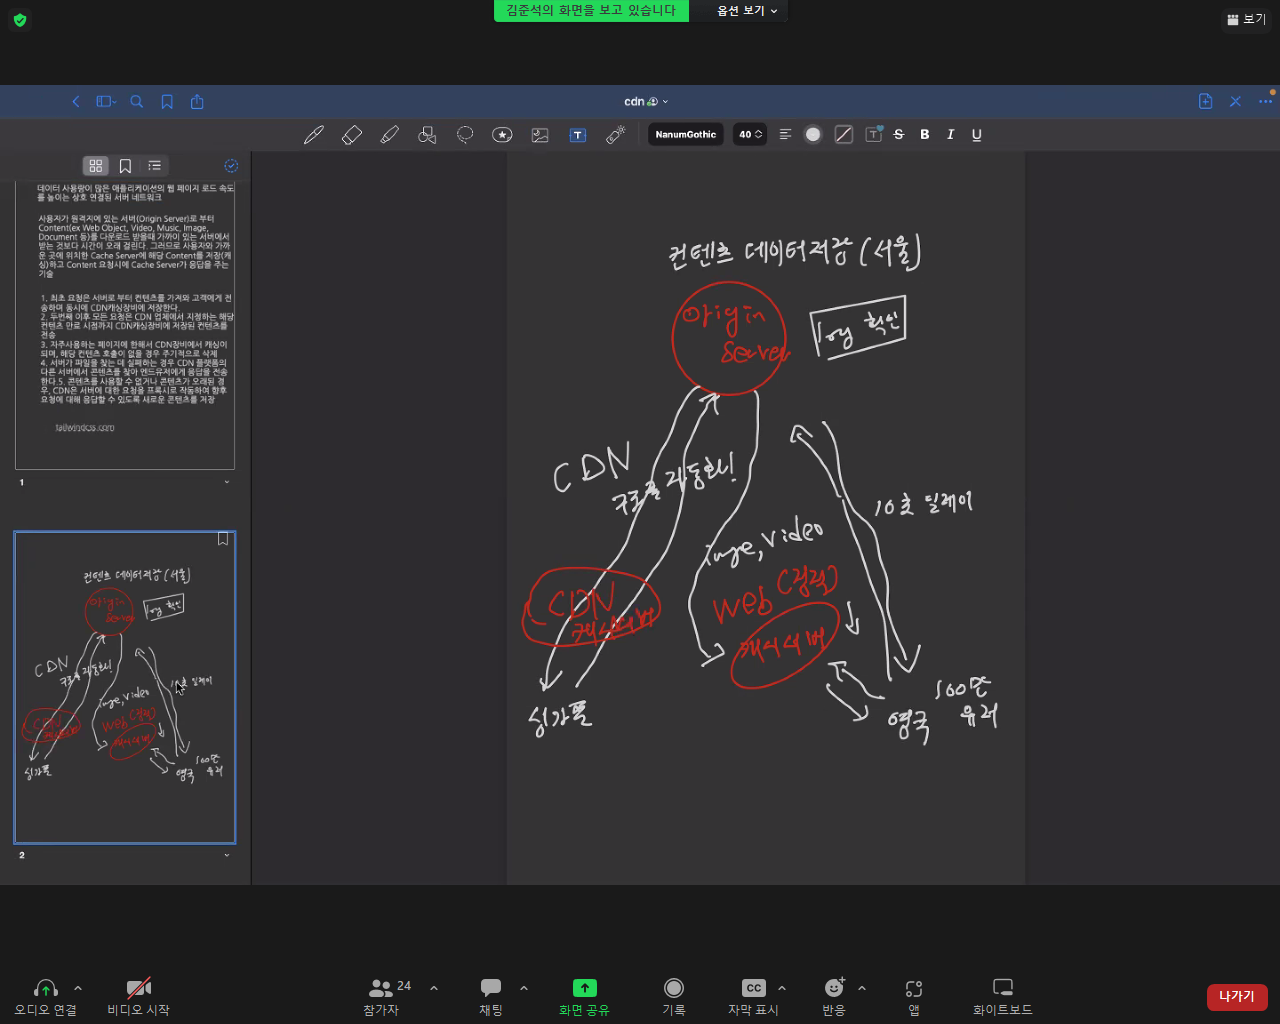 김준석의 화면을 보고 있습니다
옵션 보기
보기
cdn
NanumGothic
40
S
B
I
U
데이터 사용량이 많은 애플리케이션의 웹 페이지 로드 속도
를 높이는 상호 연결된 서버 네트워크
사용자가 원격지에 있는 서버(Origin Server)로 부터
Content(ex Web Object, Video, Music, Image,
Document 등)를 다운로드 받을때 가까이 있는 서버에서
받는 것보다 시간이 오래 걸린다. 그러므로 사용자와 가까
운 곳에 위치한 Cache Server에 해당 Content를 저장(캐
싱)하고 Content 요청시에 Cache Server가 응답을 주는
기술
1. 최초 요청은 서버로 부터 컨텐츠를 가져와 고객에게 전
송하며 동시에 CDN캐싱장비에 저장한다.
2. 두번째 이후 모든 요청은 CDN 업체에서 지정하는 해당
컨텐츠 만료 시점까지 CDN캐싱장비에 저장된 컨텐츠를
전송
3. 자주사용하는 페이지에 한해서 CDN장비에서 캐싱이
되며, 해당 컨텐츠 호출이 없을 경우 주기적으로 삭제
4. 서버가 파일을 찾는 데 실패하는 경우 CDN 플랫폼의
다른 서버에서 콘텐츠를 찾아 엔드유저에게 응답을 전송
한다.5. 콘텐츠를 사용할 수 없거나 콘텐츠가 오래된 경
우, CDN은 서버에 대한 요청을 프록시로 작동하여 향후
요청에 대해 응답할 수 있도록 새로운 콘텐츠를 저장
tailwindcss.com
1
2
컨텐츠 데이터저장 (서울)
Origin
Server
log 확인
CDN
10초 딜레이
image, video
Web (정적)
CDN
캐시서버
캐시서버
싱가폴
영국
100만
유저
오디오 연결
비디오 시작
24
참가자
채팅
화면 공유
기록
CC
자막 표시
반응
앱
화이트보드
나가기